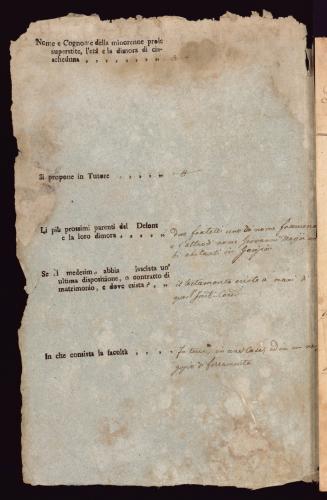 Nome e Cognome della minorenne prole
superstite, l'età e la dimora di cia-
scheduna
Si propone in Tutore
Li più prossimi parenti del Defont
e la loro dimora
due fratelli uno di nome
e l'altro di nome Giovanni
abitanti in
Se il medesimo abbia lasciata un'
ultima disposizione, o contratto di
matrimonio, e dove esista
il testamento esiste a mani di
In che consista la facoltà
In terre, in una casa, ed in un ne-
gozio di ferramenta